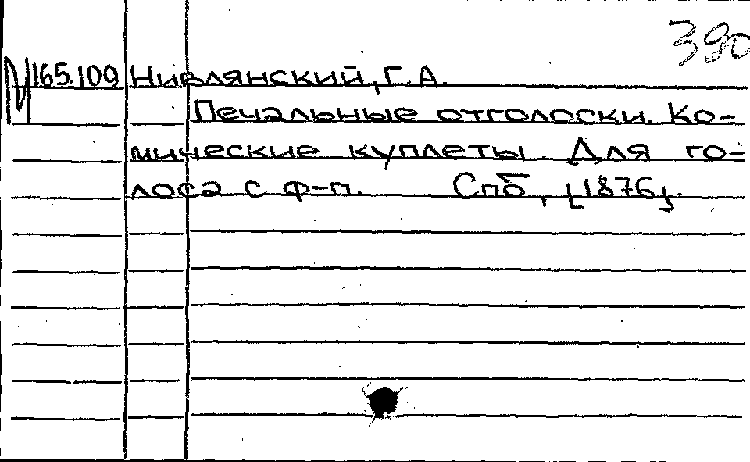 390
М 165.109 Нивлянский, Г.А.
Печальные отголоски. Ко-
мические куплеты. Для го-
лоса с ф-п. Спб, [1876].